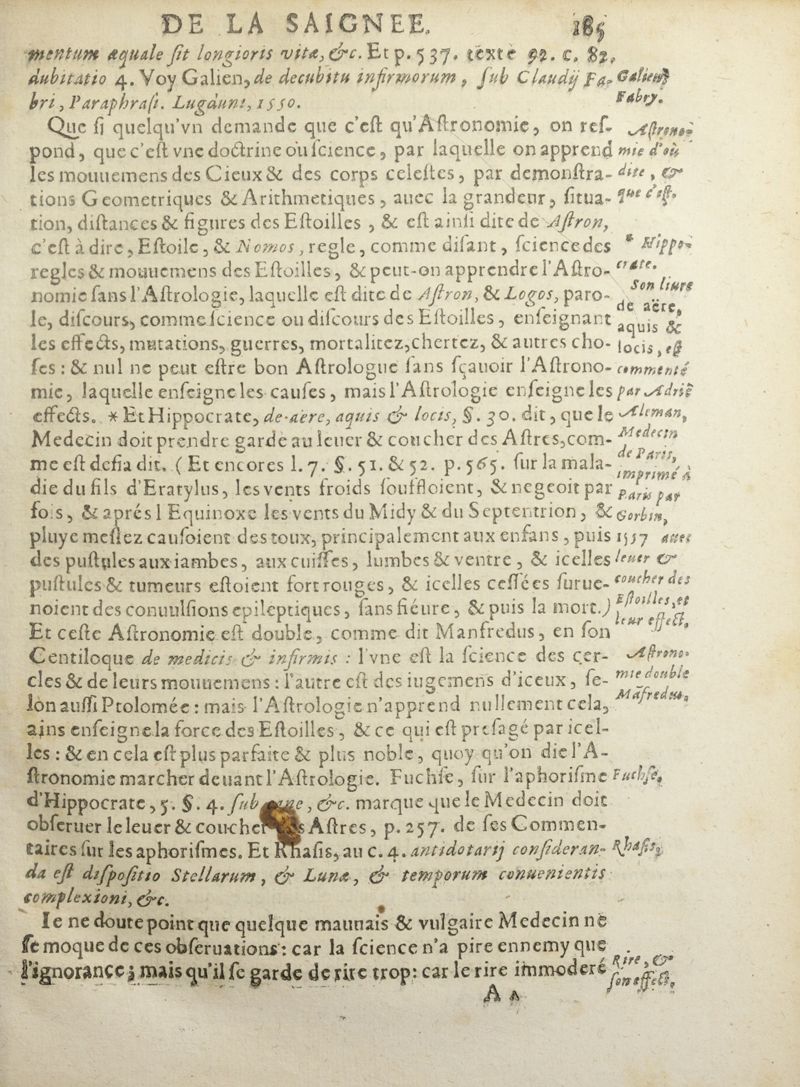 DE LA SAIGNEE. 185
mentum æquale sit longioris vitæ, &c. Et p. 537. texte 92. c. 82,
dubitatio 4. Voy Galien, de decubitu infirmorum, sub Claudij Fa-
bri, Paraphrasi. Lugduni, 1550.
Galien
Fabry.
Que si quelqu'vn demande que c'est qu'Astronomie, on res-
pond, que c'est vne doctrine ou science, par laquelle on apprend
les mouuemens des Cieux & des corps celestes, par demonstra-
tions Geometriques & Arithmetiques, auec la grandeur, situa-
tion, distances & figures des Estoilles, & est ainsi dite de Astron,
c'est à dire, Estoile, & Nomos, regle, comme disant, science des
regles & mouuemens des Estoilles, & peut-on apprendre l'Astro-
nomie sans l'Astrologie, laquelle est dite de Astron, & Logos, paro-
le, discours, comme science ou discours des Estoilles, enseignant
les effects, mutations, guerres, mortalitez, chertez, & autres cho-
ses : & nul ne peut estre bon Astrologue sans sçauoir l'Astrono-
mie, laquelle enseigne les causes, mais l'Astrologie enseigne les
effects. * Et Hippocrate, de aëre, aquis & locis, §. 30. dit, que le
Medecin doit prendre garde au leuer & coucher des Astres, com-
me est desia dit. ( Et encores l. 7. §. 51. & 52. p. 565. sur la mala-
die du fils d'Eratylus, les vents froids souffloient, & negeoit par
fois, & aprés l Equinoxe les vents du Midy & du Septentrion, &
pluye meslez causoient des toux, principalement aux enfans, puis
des pustules aux iambes, aux cuisses, lumbes & ventre, & icelles
pustules & tumeurs estoient fort rouges, & icelles cessées surue-
noient des conuulsions epileptiques, sans fiéure, & puis la mort.)
Et ceste Astronomie est double, comme dit Manfredus, en son
Centiloque de medicis & infirmis : l'vne est la science des cer-
cles & de leurs mouuemens : l'autre est des iugemens d'iceux, se-
lon aussi Ptolomée : mais l'Astrologie n'apprend nullement cela,
ains enseigne la force des Estoilles, & ce qui est presagé par icel-
les : & en cela est plus parfaite & plus noble, quoy qu'on die l'A-
stronomie marcher deuant l'Astrologie. Fuchse, sur l'aphorisme
d'Hippocrate, 5. §. 4. sub &c. marque que le Medecin doit
obseruer le leuer & coucher des Astres, p. 257. de ses Commen-
taires sur les aphorismes. Et Rhasis, au c. 4. antidotarij consideran-
da est dispositio Stellarum, & Lunæ, & temporum conuenientis
complexioni, &c.
Ie ne doute point que quelque mauuais & vulgaire Medecin ne
se moque de ces obseruations : car la science n'a pire ennemy que
l'ignorance ; mais qu'il se garde de rire trop : car le rire immoderé
Astrono-
mie d'où
dite, &
que c'est.
* Hippo-
crate.
Son liure
de aëre,
aquis &
locis, est
commenté
par Adriē
Aleman,
Medecin
de Paris,
imprimé à
Paris par
Gorbin,
1557 auec
leuer &
coucher des
Estoilles, et
leur effect.
Astrono-
mie double
Māfredus.
Fuchse.
Rhasis.
Rire, &
son effect.
A a